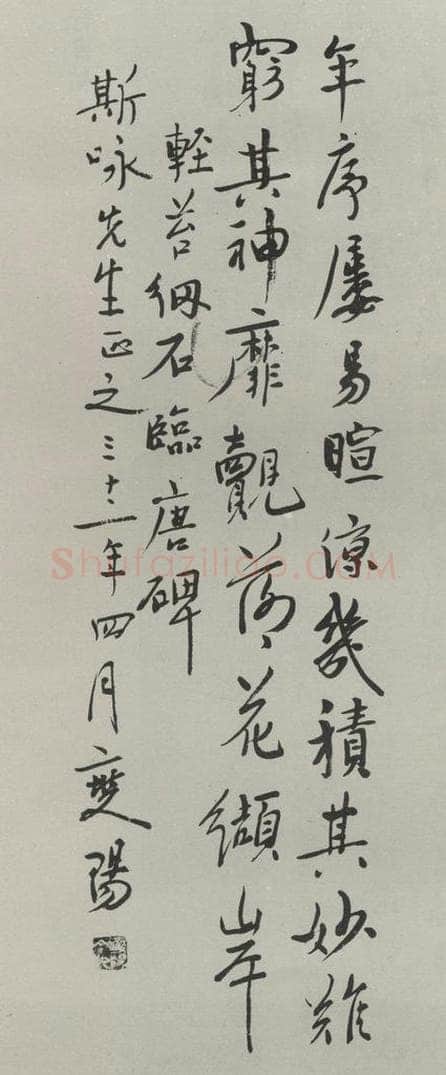 年序屢易暄涼幾積其妙難
窮其神靡覿落花纈岸
輕苔網石臨唐碑
斯咏先生正之三十二年四月陽
Shufaziliao.COM